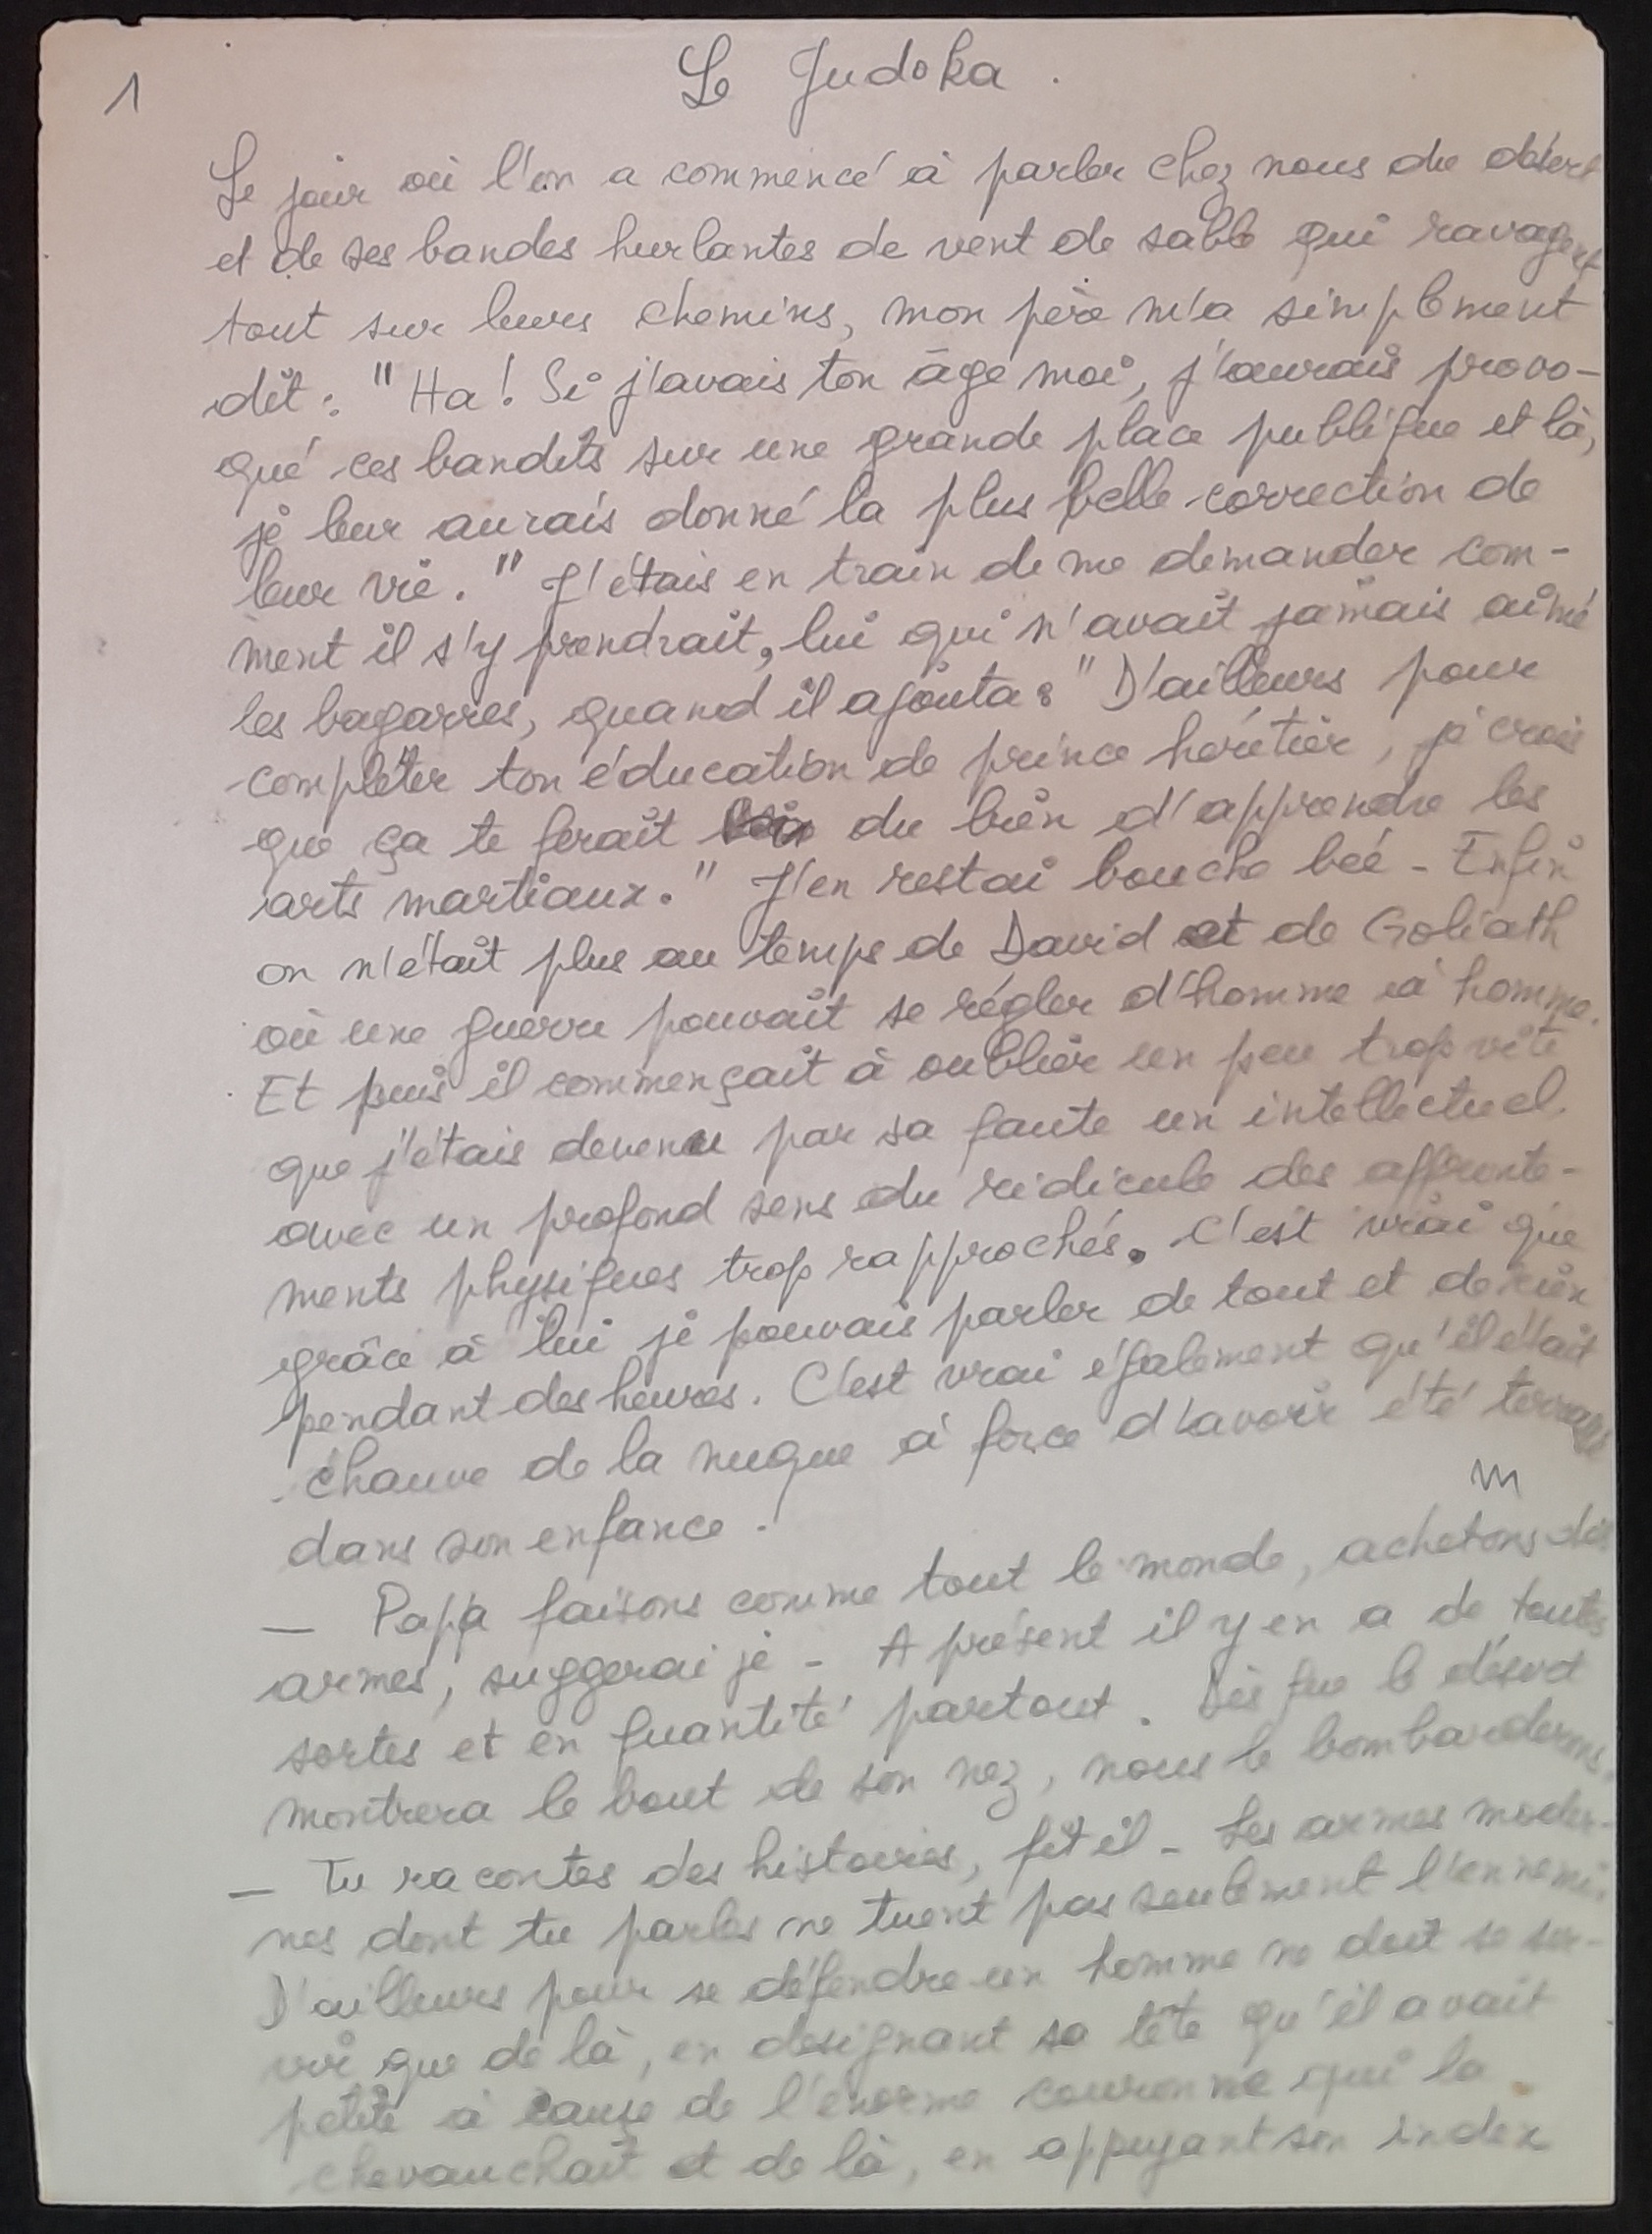 1
Le Judoka.
Le jour où l'on a commencé à parler chez nous du désert
et de ses bandes hurlantes de vent de sable qui ravagent
tout sur leurs chemins, mon père m'a simplement
dit : "Ha ! Si j'avais ton âge moi, j'aurais provo-
qué ces bandits sur une grande place publique et là,
je leur aurais donné la plus belle correction de
leur vie." J'étais en train de me demander com-
ment il s'y prendrait, lui qui n'avait jamais aimé
les bagarres, quand il ajouta : "D'ailleurs pour
compléter ton éducation de prince héritier, je crois
que ça te ferait du bien d'apprendre les
arts martiaux." J'en restai bouche béé - Enfin
on n'était plus au temps de David et de Goliath
où une guerre pouvait se régler d'homme à homme.
Et puis il commençait à oublier un peu trop vite
que j'étais devenu par sa faute un intellectuel
avec un profond sens du ridicule des affronte-
ments physiques trop rapprochés. C'est vrai que
grâce à lui je pouvais parler de tout et de rien
pendant des heures. C'est vrai également qu'il était
chauve de la nuque à force d'avoir été terrassé
dans son enfance.
m
— Papa faisons comme tout le monde, achetons des
armes, suggerai je - A présent il y en a de toutes
sortes et en quantité partout. Dès que le désert
montrera le bout de son nez, nous le bombarderons.
— Tu racontes des histoires, fit il - Les armes moder-
nes dont tu parles ne tuent pas seulement l'ennemi.
D'ailleurs pour se défendre un homme ne doit se ser-
vir que de là, en designant sa tête qu'il avait
petite à cause de l'énorme couronne qui la
chevauchait et de là, en appuyant son index